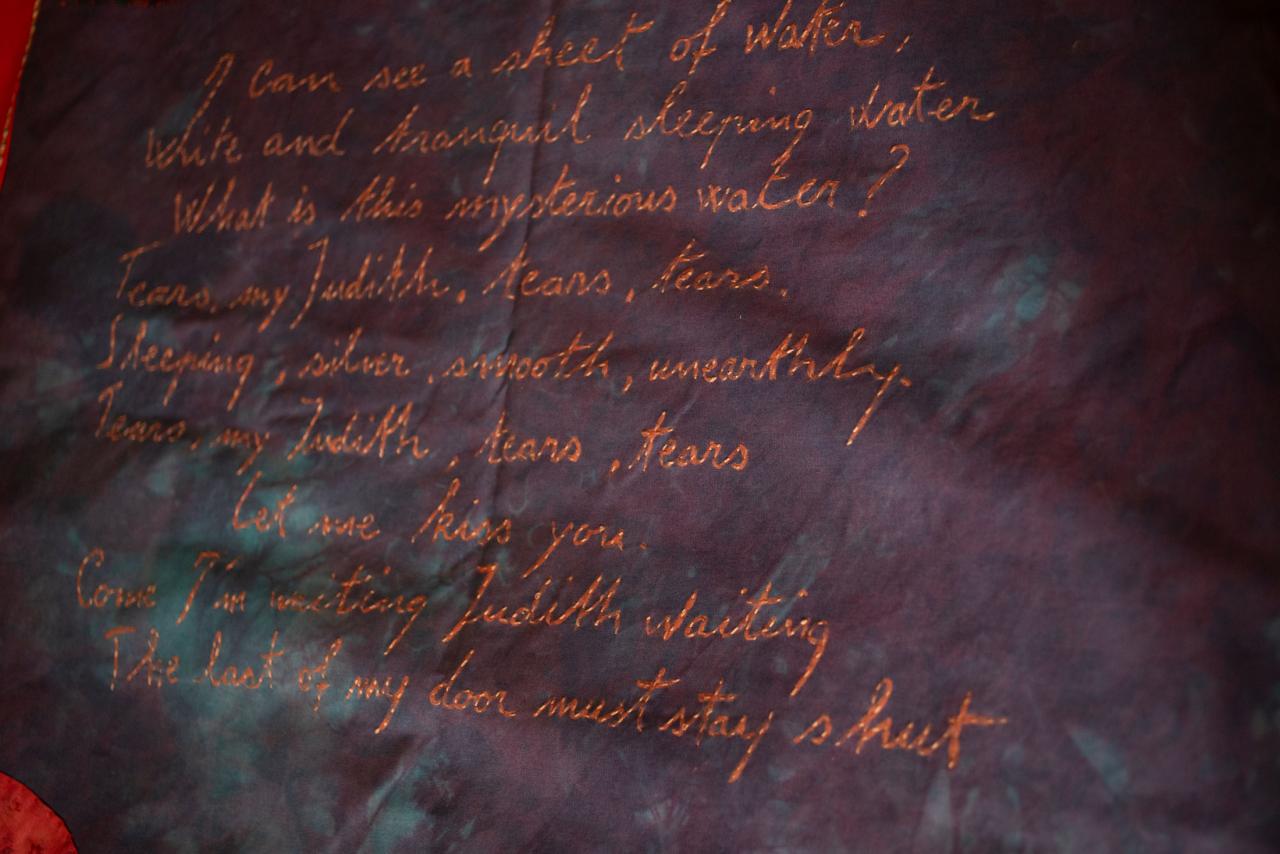 I can see a sheet of water,
White and tranquil sleeping water
What is this mysterious water?
Tears, my Judith, tears, tears.
Sleeping, silver, smooth, unearthly.
Tears, my Judith, tears, tears
Let me kiss you.
Come I'm waiting Judith waiting
The last of my door must stay shut